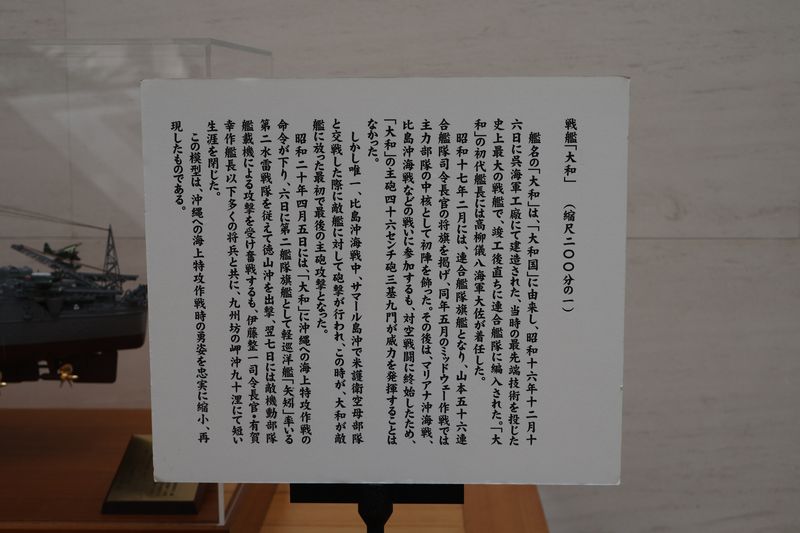 戦艦「大和」　（縮尺二〇〇分の一）
艦名の「大和」は、「大和国」に由来し、昭和十六年十二月十
六日に呉海軍工廠にて建造された、当時の最先端技術を投じた
史上最大の戦艦で、竣工後直ちに連合艦隊に編入された。「大
和」の初代艦長には高柳儀八海軍大佐が着任した。
昭和十七年二月には、連合艦隊旗艦となり、山本五十六連
合艦隊司令長官の将旗を掲げ、同年五月のミッドウェー作戦では
主力部隊の中核として初陣を飾った。その後は、マリアナ沖海戦、
比島沖海戦などの戦いに参加するも、対空戦闘に終始したため、
「大和」の主砲四十六センチ砲三基九門が威力を発揮することは
なかった。
しかし唯一、比島沖海戦中、サマール島沖で米護衛空母部隊
と交戦した際に敵艦に対して砲撃が行われ、この時が、大和が敵
艦に放った最初で最後の主砲攻撃となった。
昭和二十年四月五日には、「大和」に沖縄への海上特攻作戦の
命令が下り、六日に第二艦隊旗艦として軽巡洋艦「矢矧」率いる
第二水雷戦隊を従えて徳山沖を出撃、翌七日には敵機動部隊
艦載機による攻撃を受け奮戦するも、伊藤整一司令長官・有賀
幸作艦長以下多くの将兵と共に、九州坊の岬沖九十浬にて短い
生涯を閉じた。
この模型は、沖縄への海上特攻作戦時の勇姿を忠実に縮小、再
現したものである。